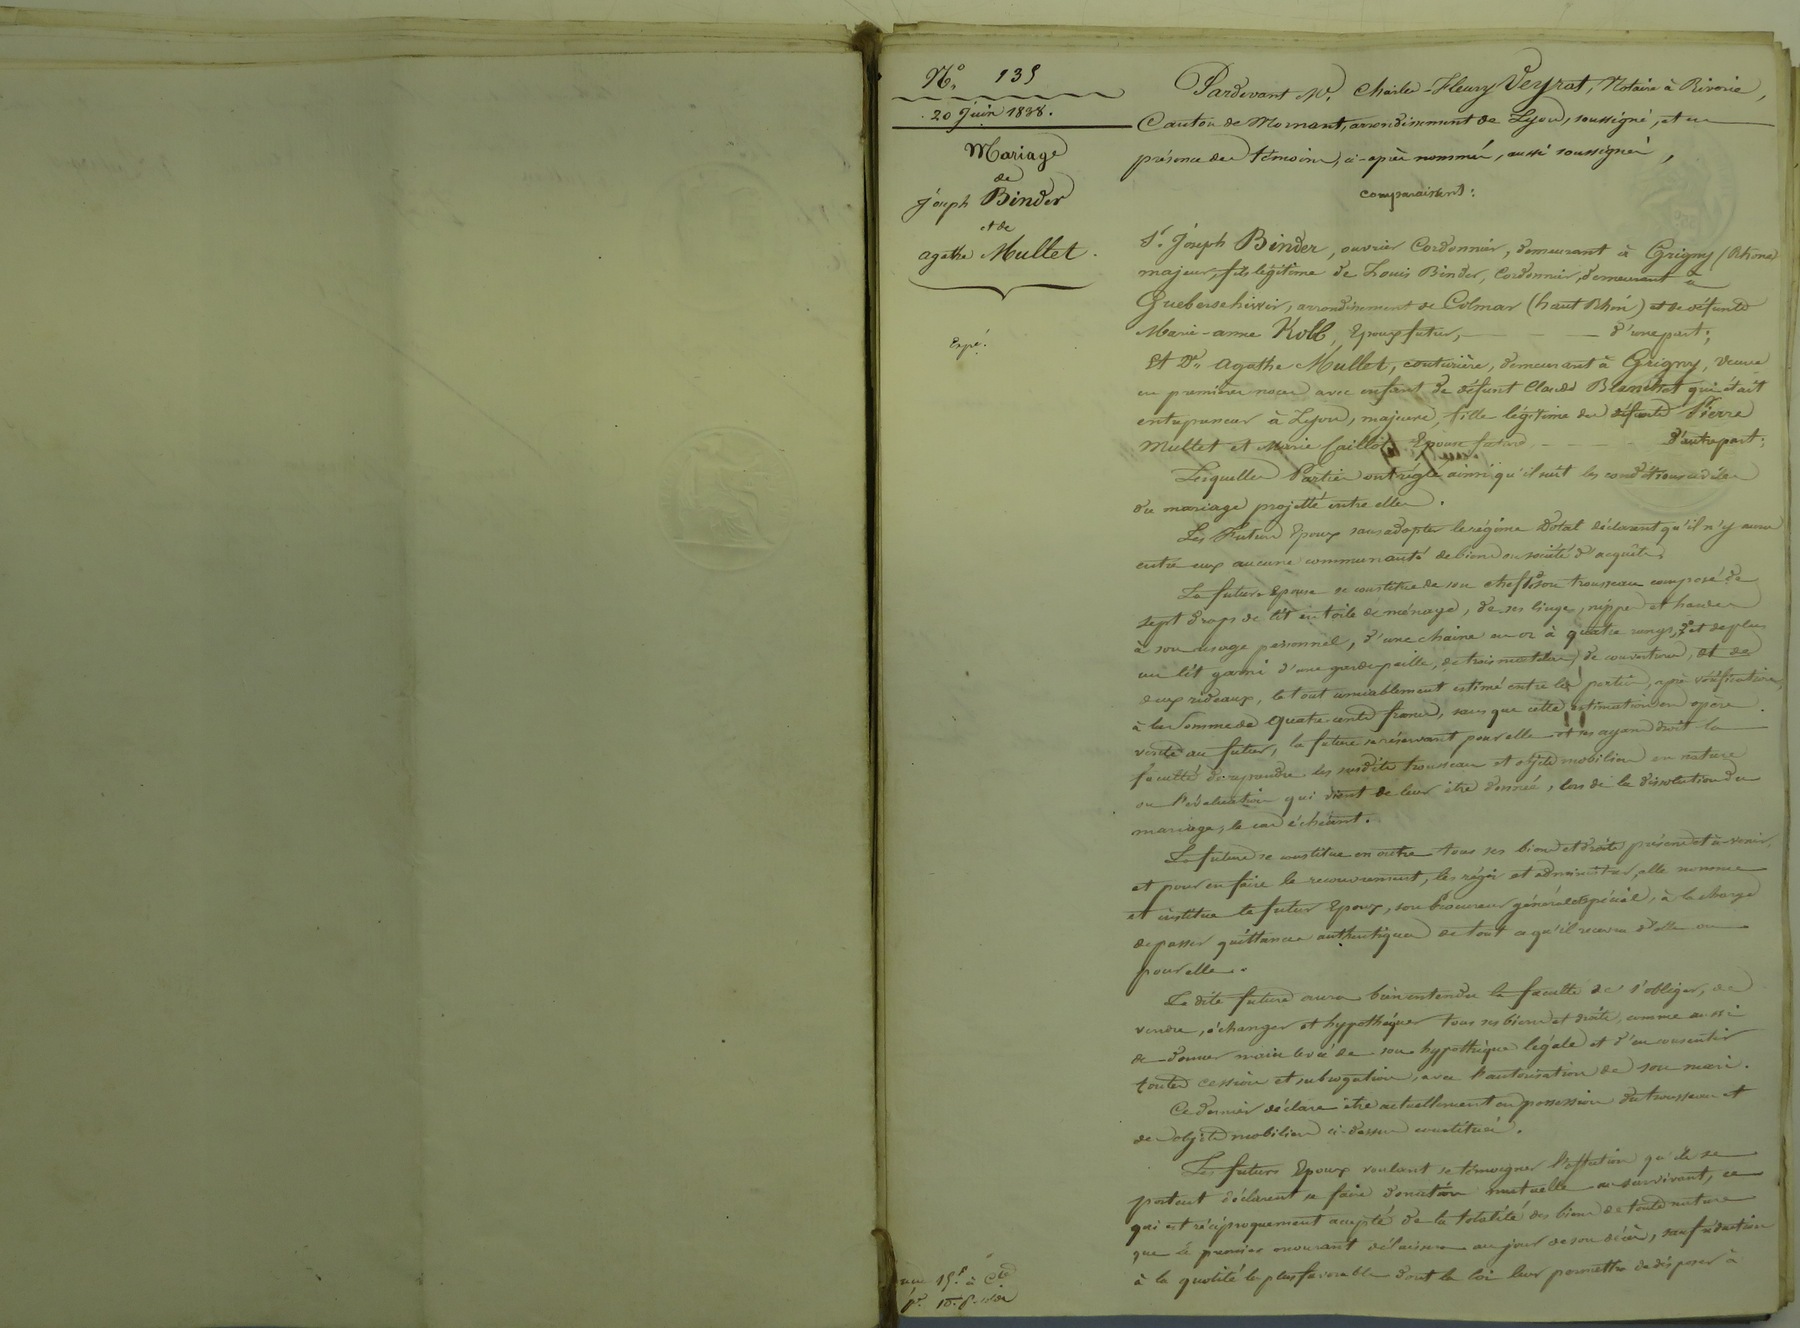 N.º 135
20 Juin 1838.
Mariage
de
Joseph Binder
et de
agathe Mullet.
Expé.
Pardevant Me. Charles-Fleury Veyrat, Notaire à Riverie,
Canton de Mornant, arrondissement de Lyon, soussigné, et en
présence des témoins, ci-après nommés, aussi soussignés,
comparaissent:
Sr. Joseph Binder, ouvrier Cordonnier, demeurant à Grigny (Rhône)
majeur, fils légitime de Louis Binder, Cordonnier, demeurant à
Gueberschwir, arrondissement de Colmar (haut Rhin) et de défunte
Marie-anne Kolb, Epoux futur, d'une part;
Et De. Agathe Mullet, couturière, demeurant à Grigny, veuve
en premières noces avec enfant de défunt Claude Blanchot qui était
entrepreneur à Lyon, majeure, fille légitime des défunts Pierre
Mullet et Marie Caillot, Epouse future d'autre part;
Lesquelles Parties ont réglé ainsi qu'il suit les conditions civiles
du mariage projetté entre elles.
Les Futurs Epoux sans adopter le régime Dotal déclarent qu'il n'y aura
entre eux aucune communauté de biens ou société d'acquêts.
La future Epouse se constitue de son chef son trousseau composé de
sept draps de lit en toile de ménage, de ses linges, nippes et hardes
à son usage personnel, d'une chaine en or à quatre rangs, et de plus
un lit garni d'une garde paille, de trois matelas, de couvertures, et de
deux rideaux, le tout amiablement estimé entre les parties, après vérification,
à la Somme de quatre cents francs, sans que cette estimation en opère
vente au futur, la future se réservant pour elle et ses ayans droit la
faculté de reprendre les susdits trousseau et objets mobiliers en nature
ou l'estimation qui vient de leur être donnée, lors de la dissolution du
mariage, le cas échéant.
La future se constitue en outre tous ses biens et droits présens et à venir,
et pour en faire le recouvrement, les régir et administrer, elle nomme
et institue le futur Epoux, son Procureur général et spécial, à la charge
de passer quittances authentiques de tout ce qu'il recevra d'elle ou
pour elle.
La dite future aura bien entendu la faculté de s'obliger, de
vendre, échanger et hypothéquer tous ses biens et droits, comme aussi
de donner main levée de son hypothèque légale et d'en consentir
toutes cession et subrogation, avec l'autorisation de son mari.
Ce dernier déclare être actuellement en possession du trousseau et
des objets mobiliers ci-dessus constitués.
Les futurs Epoux voulant se témoigner l'affection qu'ils se
portent déclarent se faire donation mutuelle au survivant, ce
qui est réciproquement accepté de la totalité des biens de toute nature
que le premier mourant délaissera au jour de son décès, sauf réduction
à la quotité la plus favorable dont la loi leur permettra de disposer à